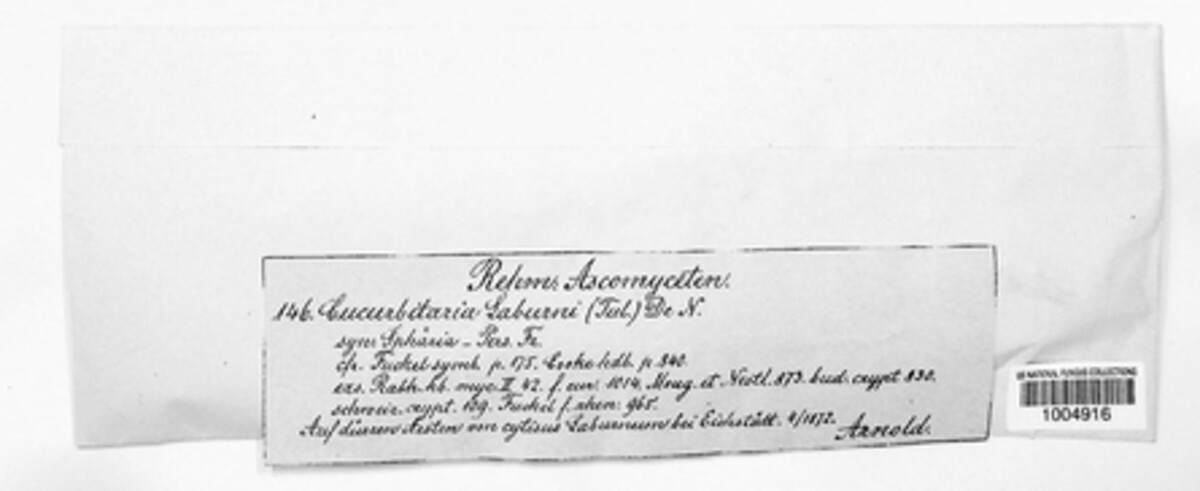 Rehm: Ascomyceten.
146. Cucurbitaria Laburni (Tul.) De N.
syn: Sphäria – Pers. Fr.
cfr. Fuckel symb. p. 175. Cooke hdb. p. 840.
exs. Rabh. hb. myc. II 42. f. eur. 1014. Moug. et Nestl. 873. bad. crypt 830.
schweiz. crypt. 109. Fuckel f. rhen. 965.
Auf dürren Aesten von cytisus Laburnum bei Eichstätt. 4/1872.
Arnold.
US NATIONAL FUNGUS COLLECTIONS
1004916